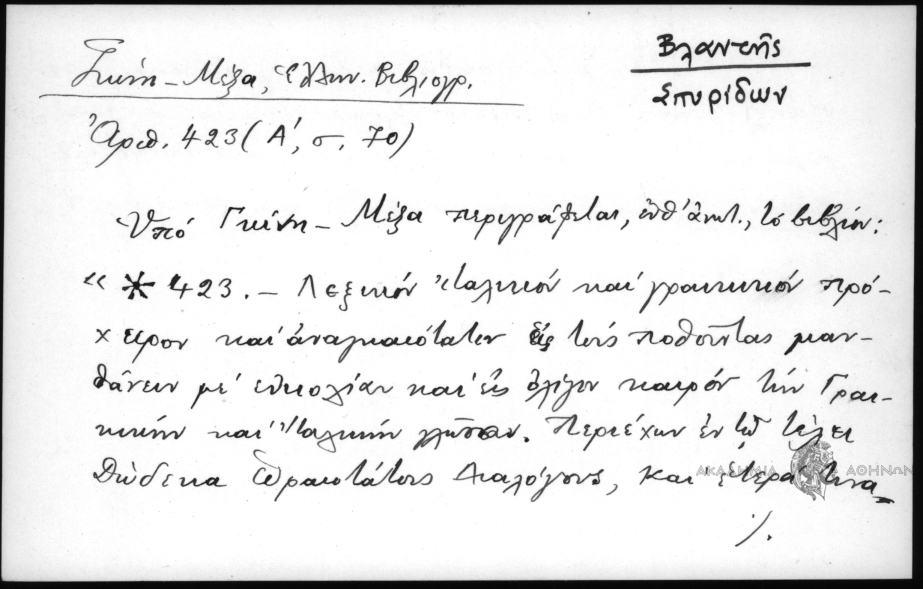 Βλαντῆς
Σπυρίδων
Γκίνη - Μέξα, Ἑλλην. Βιβλιογρ.
Ἀριθ. 423 (Α', σ. 70)
Ὑπό Γκίνη - Μέξα περιγράφεται, ὑπ' ἀριθ., τό βιβλίον:
« * 423. - Λεξικόν Ἰταλικόν καί γραικικόν πρό-
χειρον καί ἀναγκαιότατον εἰς τούς ποθοῦντας μαν-
θάνειν μέ εὐκολίαν καί εἰς ὀλίγον καιρόν τήν Γραι-
κικήν καί Ἰταλικήν γλῶσσαν. Περιέχων ἐν τῷ τέλει
δώδεκα ὡραιοτάτους Διαλόγους, καί ἕτερά τινα
ΑΚΑΔΗΜΙΑ ΑΘΗΝΩΝ
./.